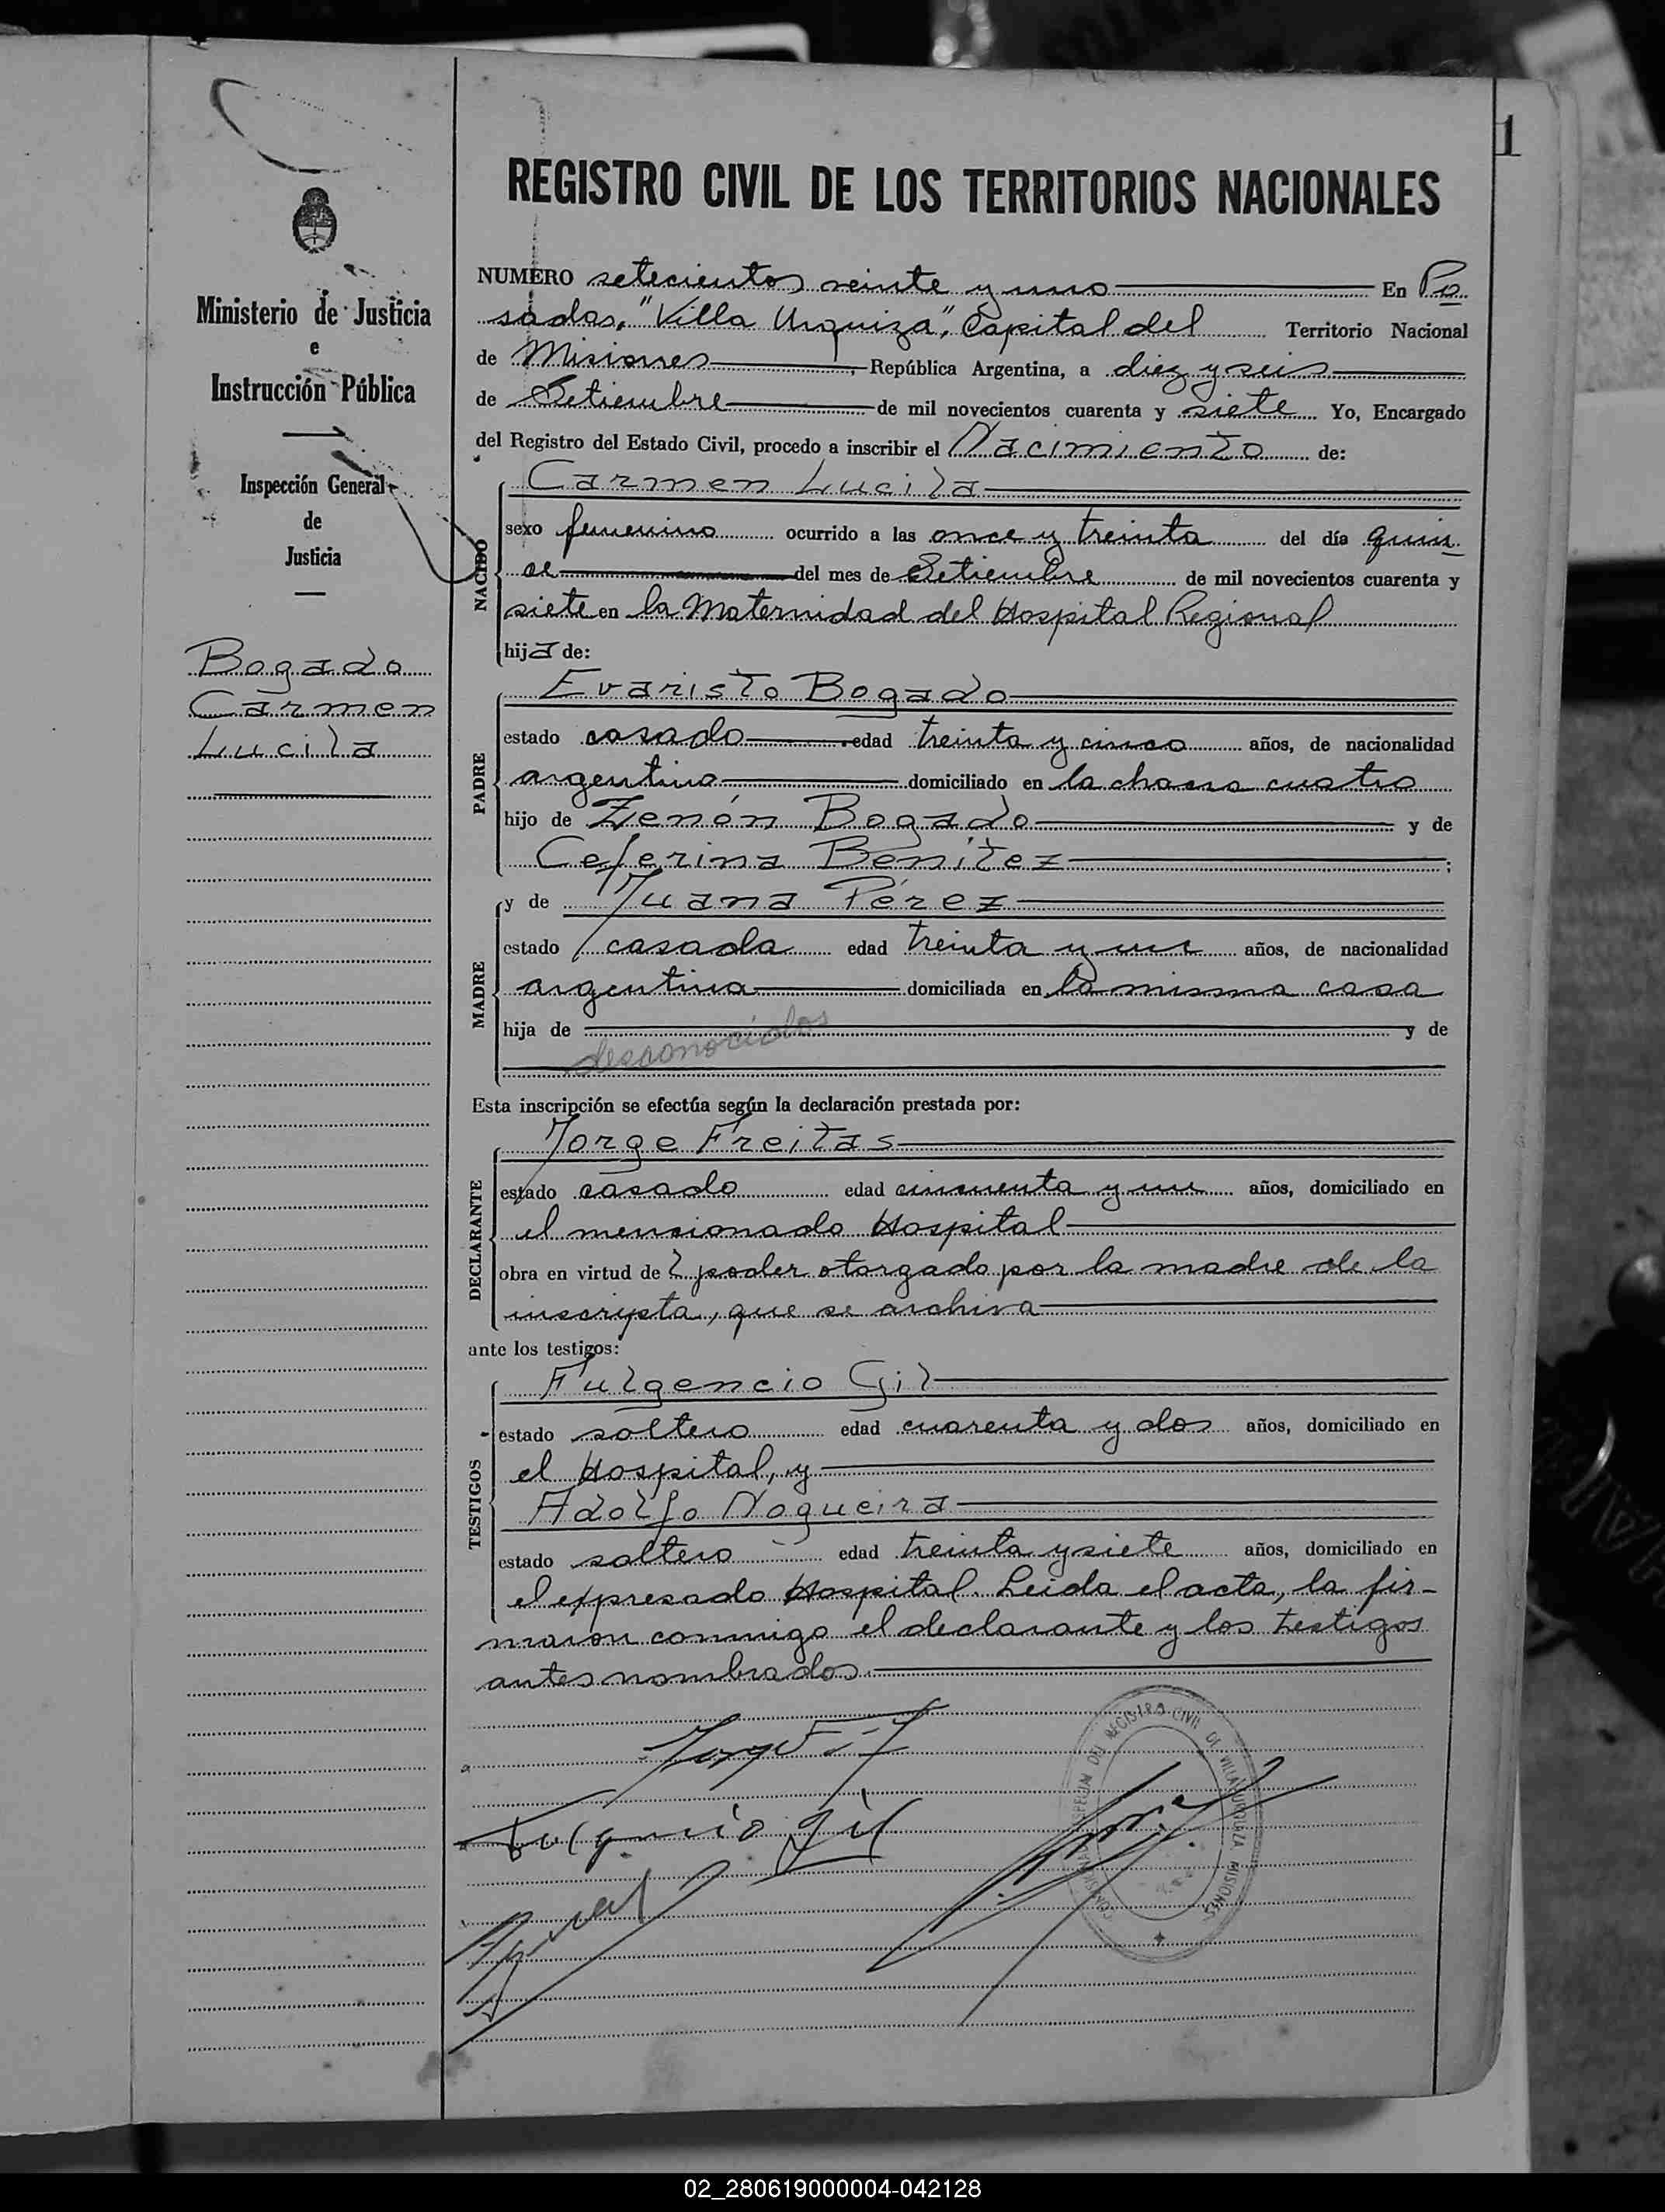 1
REGISTRO CIVIL DE LOS TERRITORIOS NACIONALES
Ministerio de Justicia
e
Instrucción Pública
Inspección General
de
Justicia
Bogado
Carmen
Lucila
NUMERO setecientos veinte y uno En Po
sadas, "Villa Urquiza", Capital del Territorio Nacional
de Misiones, República Argentina, a diez y seis
de Setiembre de mil novecientos cuarenta y siete Yo, Encargado
del Registro del Estado Civil, procedo a inscribir el Nacimiento de:
NACIDO
Carmen Lucila
sexo femenino ocurrido a las once y treinta del día quin
ce del mes de Setiembre de mil novecientos cuarenta y
siete en la Maternidad del Hospital Regional
hija de:
PADRE
Evaristo Bogado
estado casado edad treinta y cinco años, de nacionalidad
argentina domiciliado en la chacra cuatro
hijo de Zenón Bogado y de
Ceferina Benítez;
MADRE
y de Juana Pérez
estado casada edad treinta y un años, de nacionalidad
argentina domiciliada en la misma casa
hija de y de
desconocidos
Esta inscripción se efectúa según la declaración prestada por:
DECLARANTE
Jorge Freitas
estado casado edad cincuenta y un años, domiciliado en
el mencionado Hospital
obra en virtud de l poder otorgado por la madre de la
inscripta, que se archiva
ante los testigos:
TESTIGOS
Fulgencio Gil
estado soltero edad cuarenta y dos años, domiciliado en
el Hospital, y
Adolfo Nogueira
estado soltero edad treinta y siete años, domiciliado en
el expresado Hospital. Leida el acta, la fir-
maron conmigo el declarante y los testigos
antes nombrados.
Fulgencio Gil
REGISTRO CIVIL DE VILLA URQUIZA MISIONES
02_280619000004-042128